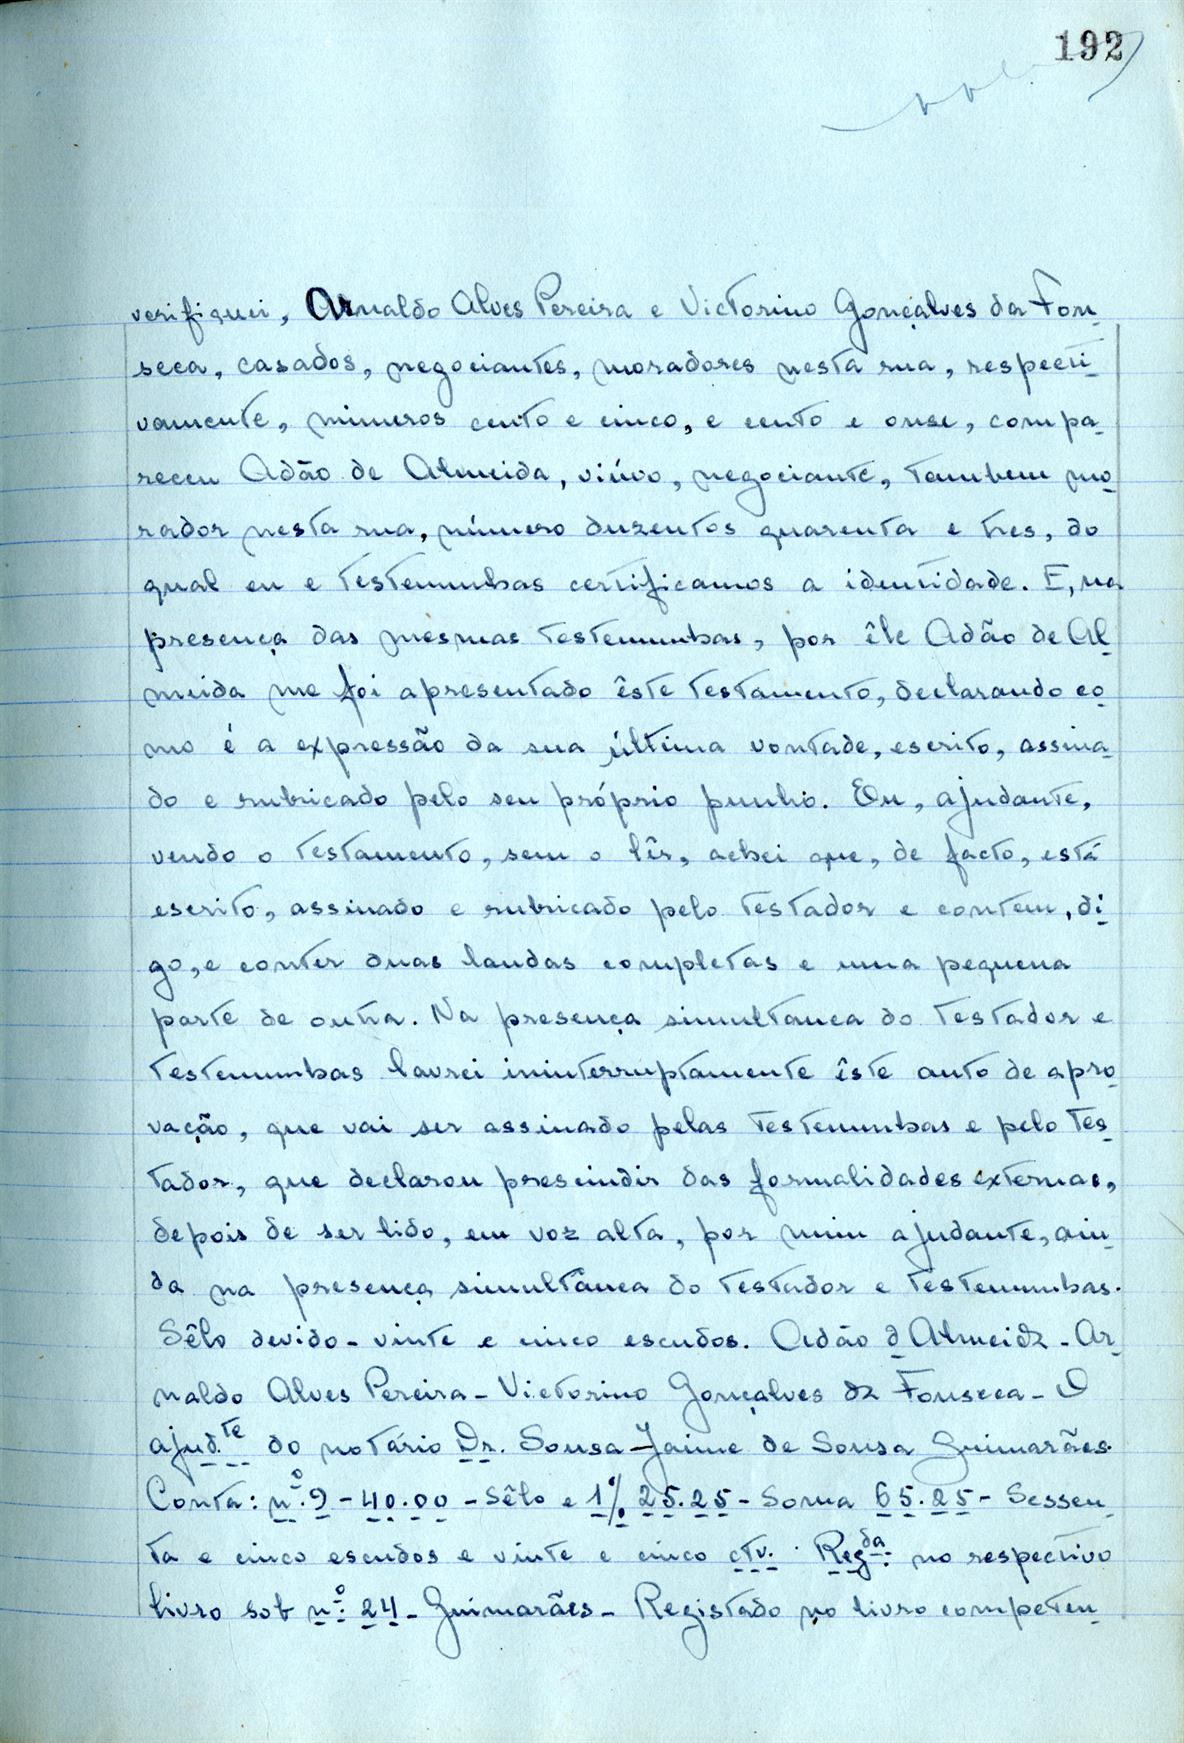 192
verifiquei, Arnaldo Alves Pereira e Victorino Gonçalves da Fon-
seca, casados, negociantes, moradores nesta rua, respecti-
vamente, números cento e cinco, e cento e onse, compa-
receu Adão de Almeida, viúvo, negociante, tambem mo-
rador nesta rua, número duzentos quarenta e tres, do
qual eu e testemunhas certificamos a identidade. E, na
presença das mesmas testemunhas, por êle Adão de Al-
meida me foi apresentado êste testamento, declarando co-
mo é a expressão da sua última vontade, escrito, assina-
do e rubricado pelo seu próprio punho. Eu, ajudante,
vendo o testamento, sem o lêr, achei que, de facto, está
escrito, assinado e rubricado pelo testador e contem, di-
go, e conter duas laudas completas e uma pequena
parte de outra. Na presença simultanea do testador e
testemunhas lavrei ininterruptamente êste auto de apro-
vação, que vai ser assinado pelas testemunhas e pelo tes-
tador, que declarou prescindir das formalidades externas,
depois de ser lido, em voz alta, por mim ajudante, ain-
da na presença simultânea do testador e testemunhas.
Sêlo devido - vinte e cinco escudos. Adão d Almeida - Ar-
naldo Alves Pereira - Victorino Gonçalves da Fonseca - O
ajud.te do notário Dr. Sousa - Jaime de Sousa Guimarães.
Conta: n.º 9 - 40.00 - Sêlo e 1% 25.25 - Soma 65.25 - Sessen-
ta e cinco escudos e vinte e cinco ctv. Reg.da no respectivo
livro sob n.º 24 - Guimarães - Registado no livro competen-